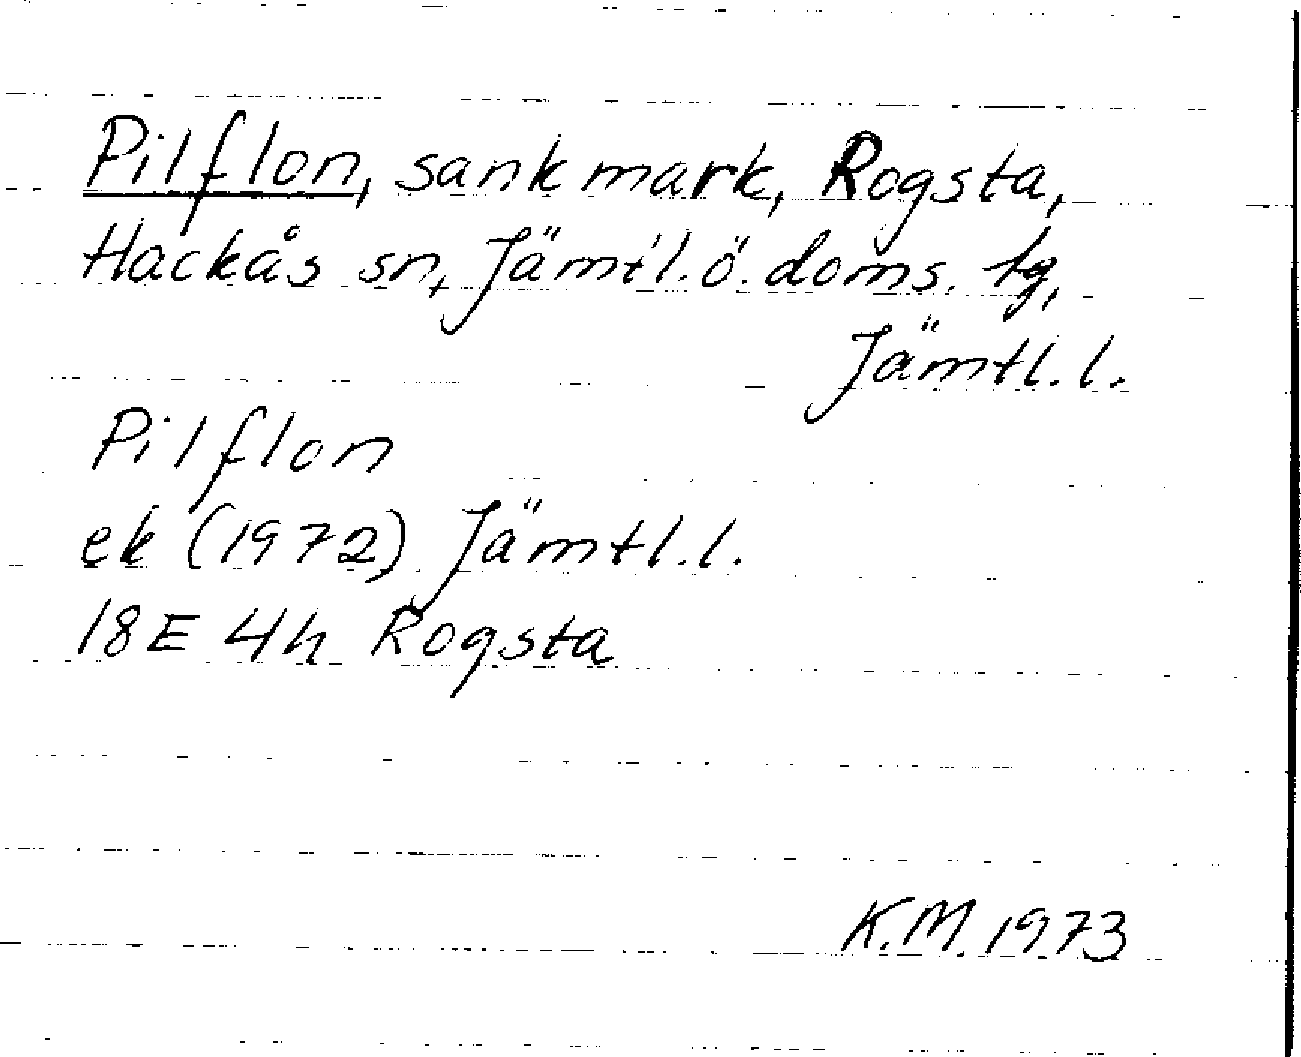 Pilflon, sank mark, Rogsta,
Hackås sn, Jämtl. ö. doms. tg,
Jämtl. l.
Pilflon
ek (1972) Jämtl. l.
18E 4h Rogsta
K.M. 1973